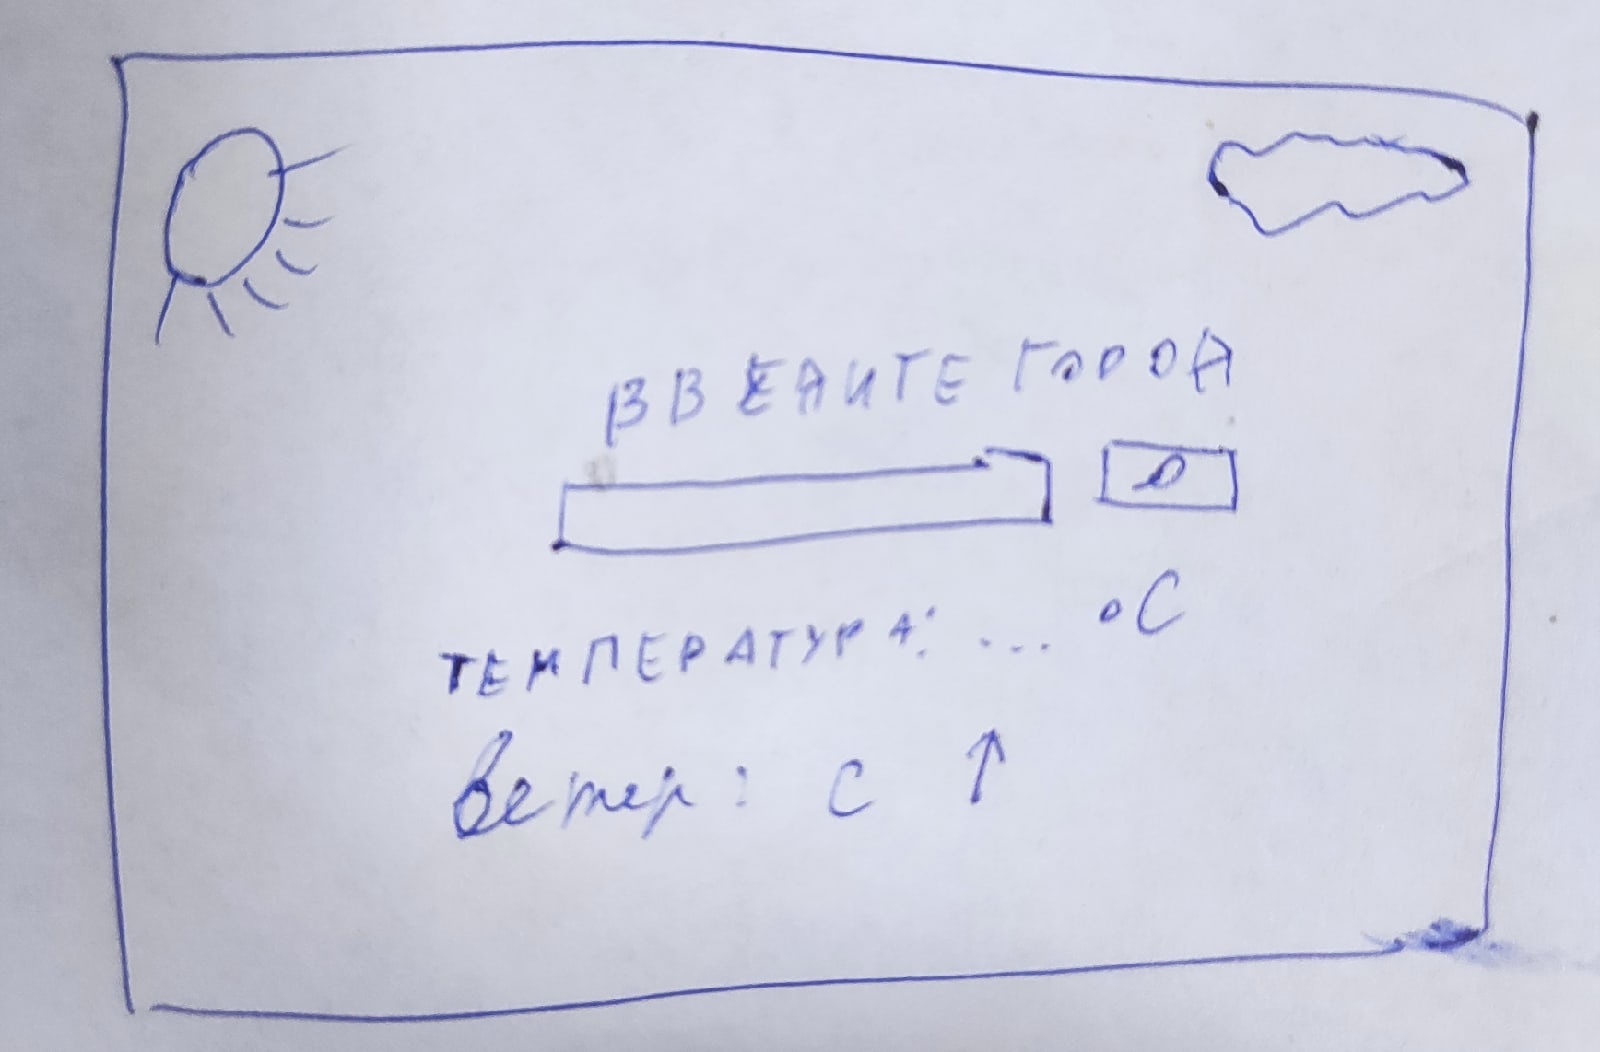 ВВЕДИТЕ ГОРОД
ТЕМПЕРАТУРА: ... °С
Ветер: С ↑